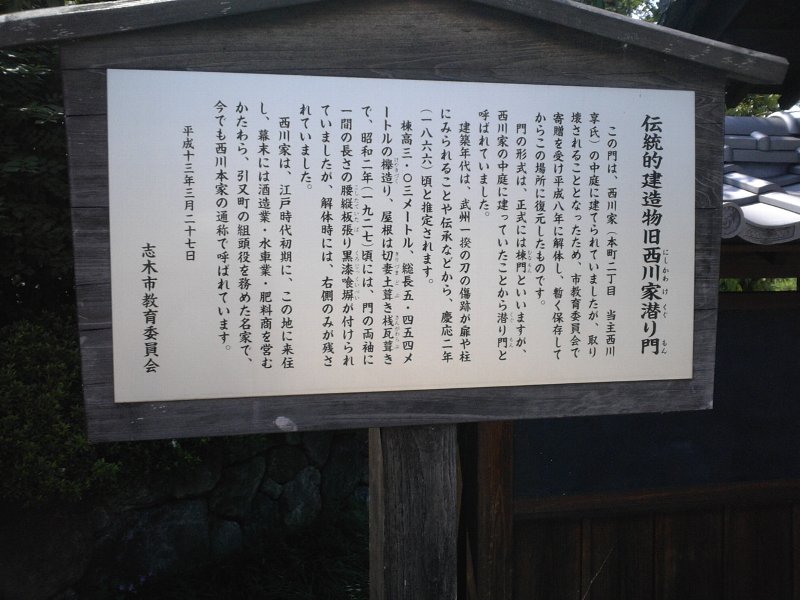 伝統的建造物旧西川家潜り門
にしかわ け くぐ もん
この門は、西川家（本町二丁目 当主西川
享氏）の中庭に建てられていましたが、取り
壊されることとなったため、市教育委員会で
寄贈を受け平成八年に解体し、暫く保存して
からこの場所に復元したものです。
門の形式は、正式には棟門といいますが、
むなもん
西川家の中庭に建っていたことから潜り門と
くぐ もん
呼ばれていました。
建築年代は、武州一揆の刀の傷跡が扉や柱
にみられることや伝承などから、慶応二年
（一八六六）頃と推定されます。
棟高三・〇三メートル、総長五・四五四メ
ートルの欅造り、屋根は切妻土葺き桟瓦葺き
けやきづく きりづまどぶ さんがわらぶ
で、昭和二年（一九二七）頃には、門の両袖に
一間の長さの腰縦板張り黒漆喰塀が付けられ
こしたていたば くろしっくいべい
ていましたが、解体時には、右側のみが残さ
れていました。
西川家は、江戸時代初期に、この地に来住
し、幕末には酒造業・水車業・肥料商を営む
かたわら、引又町の組頭役を務めた名家で、
今でも西川本家の通称で呼ばれています。
平成十三年三月二十七日
志木市教育委員会